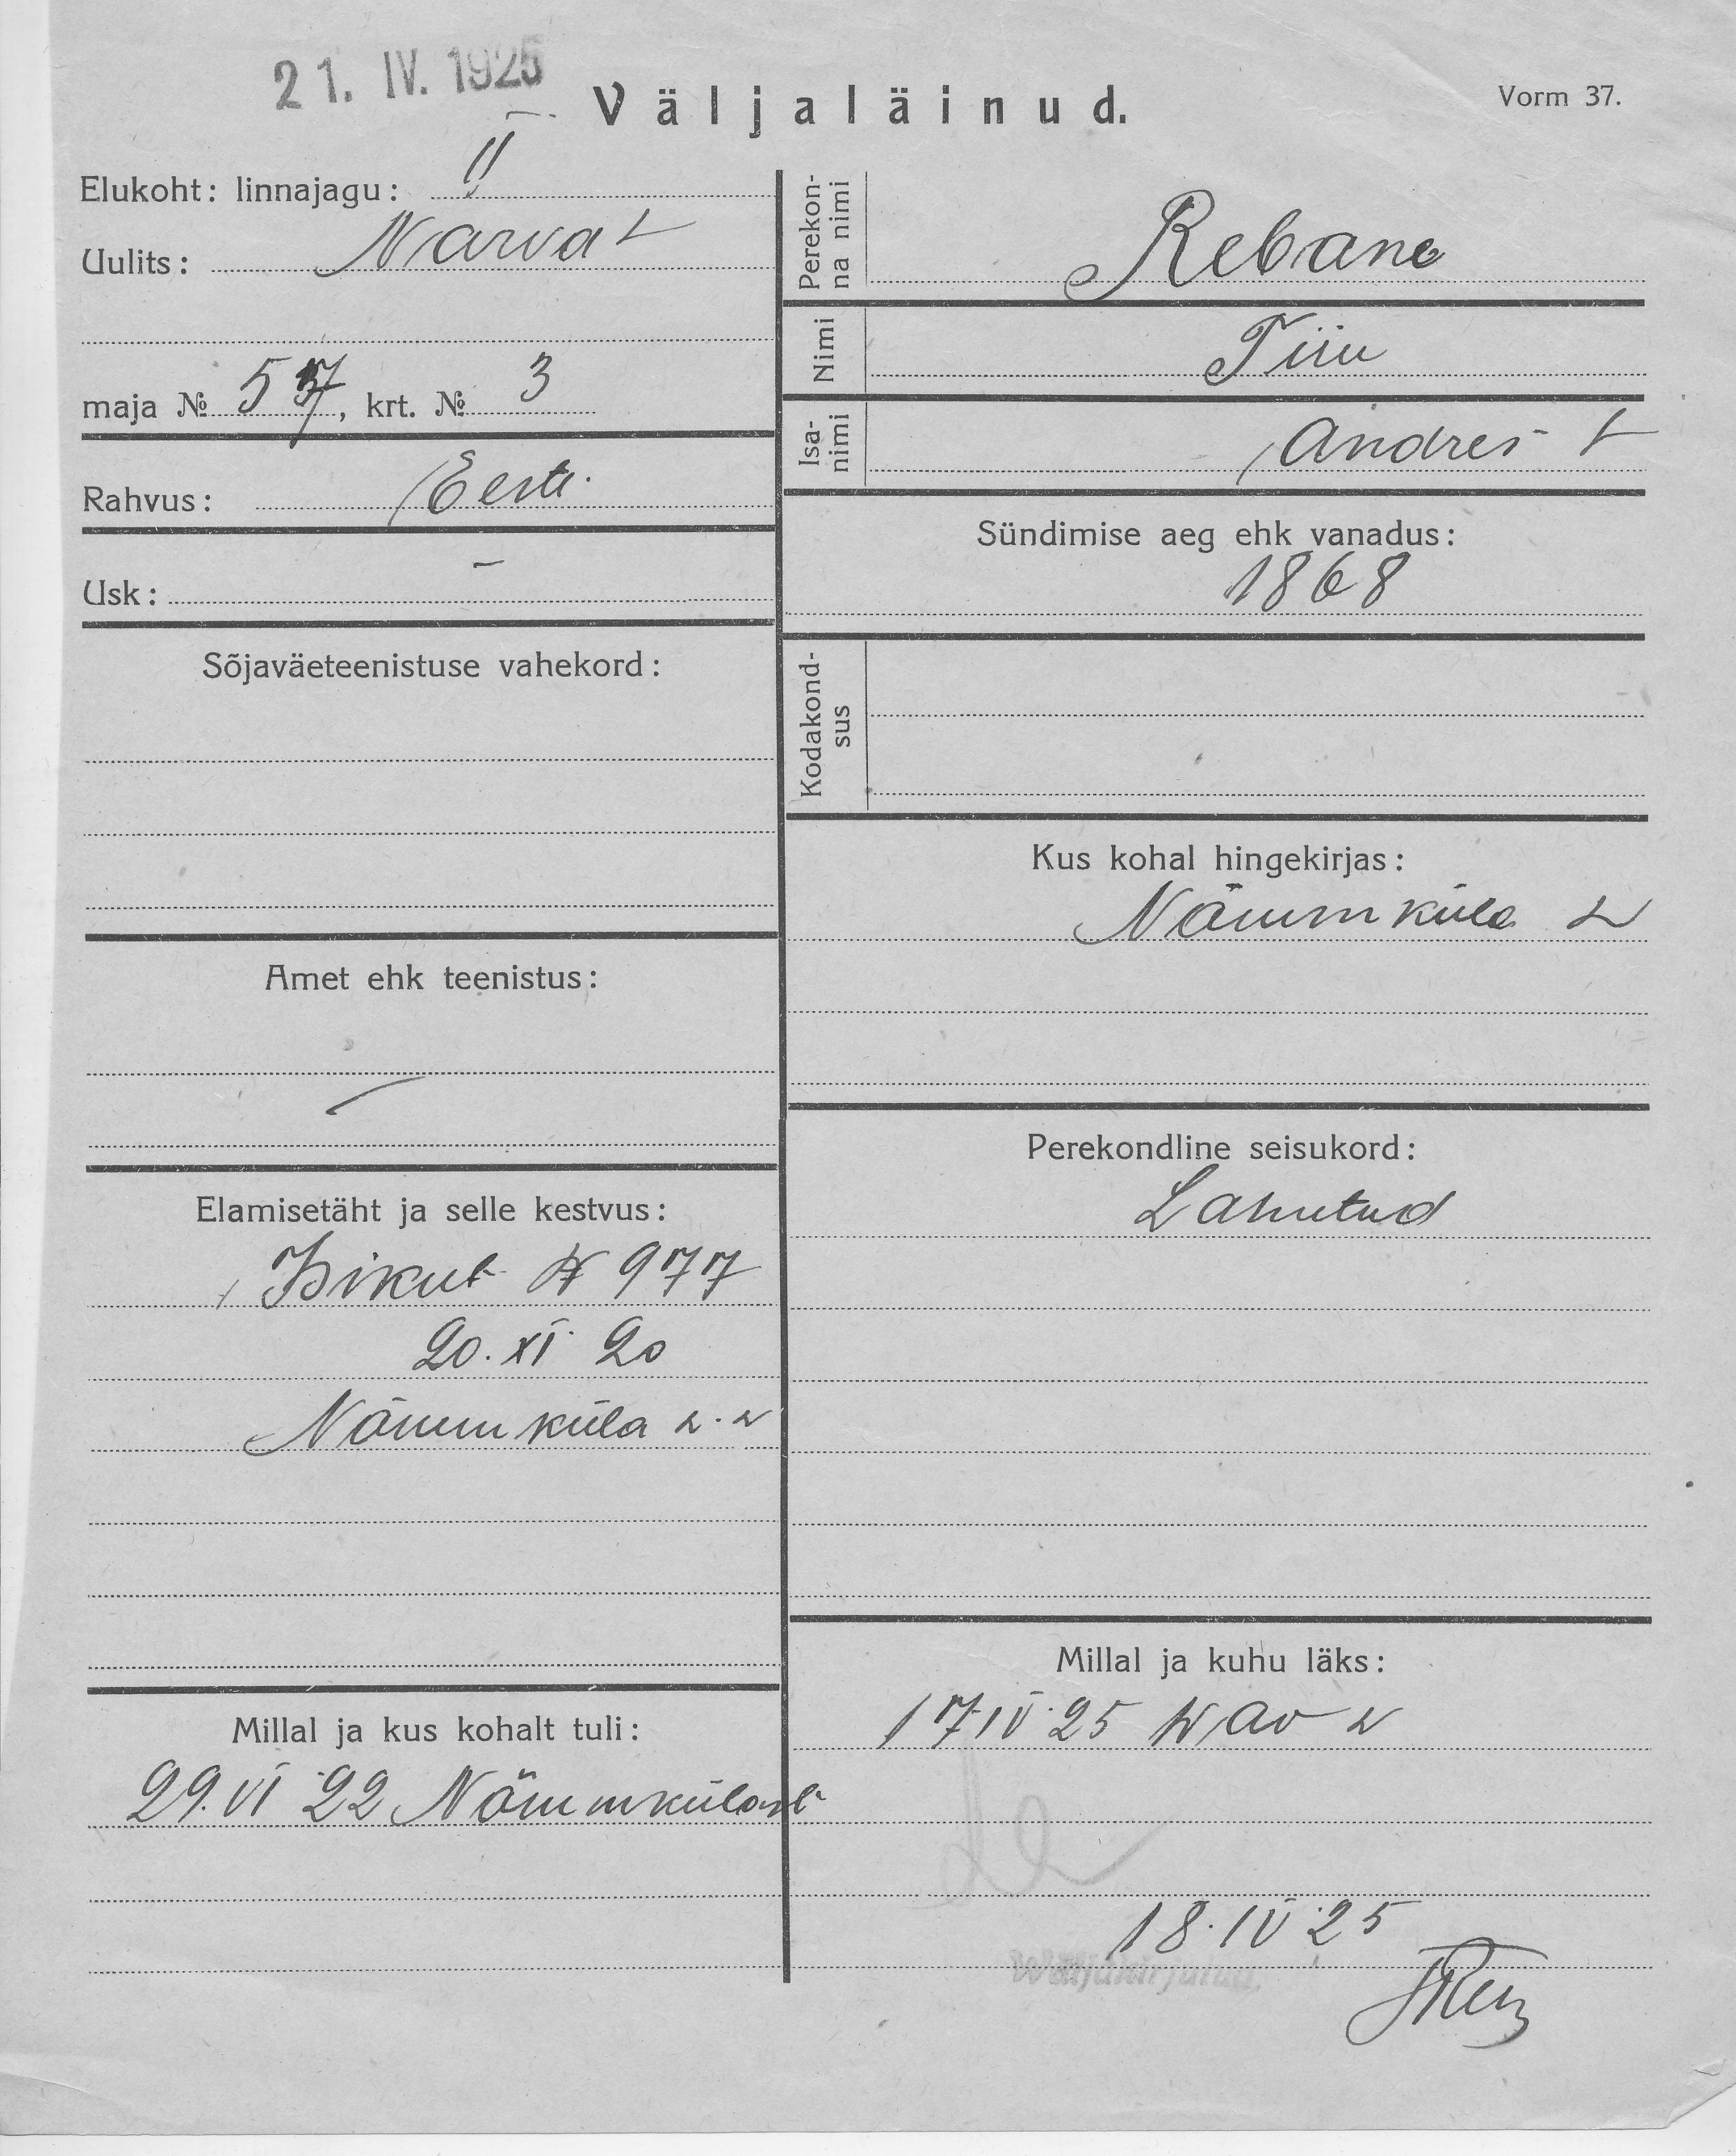 21. IV. 1925
Väljaläinud.
Vorm 37.
Elukoht: linnajagu: II
Uulits: Narva t
maja № 57, krt. № 3
Rahvus: Eesti
Usk: –
Sõjaväeteenistuse vahekord:
Amet ehk teenistus:
–
Elamisetäht ja selle kestvus:
Isikut № 977
20. XI 20
Nõmmküla v. v
Millal ja kus kohalt tuli:
29. VI 22 Nõmmkülast
Perekonna nimi
Rebane
Nimi
Tiiu
Isanimi
Andres t
Sündimise aeg ehk vanadus:
1868
Kodakondsus
Kus kohal hingekirjas:
Nõmmküla v
Perekondline seisukord:
Lahutud
Millal ja kuhu läks:
17 IV 25
18. IV 25
Wäljakirjutud.